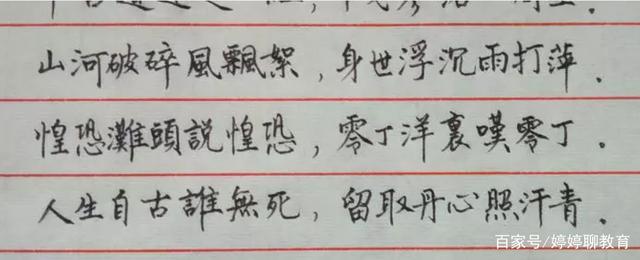 山河破碎風飄絮，身世浮沉雨打萍．
惶恐灘頭説惶恐，零丁洋裏嘆零丁．
人生自古誰無死，留取丹心照汗青．
百家号/婷婷聊教育